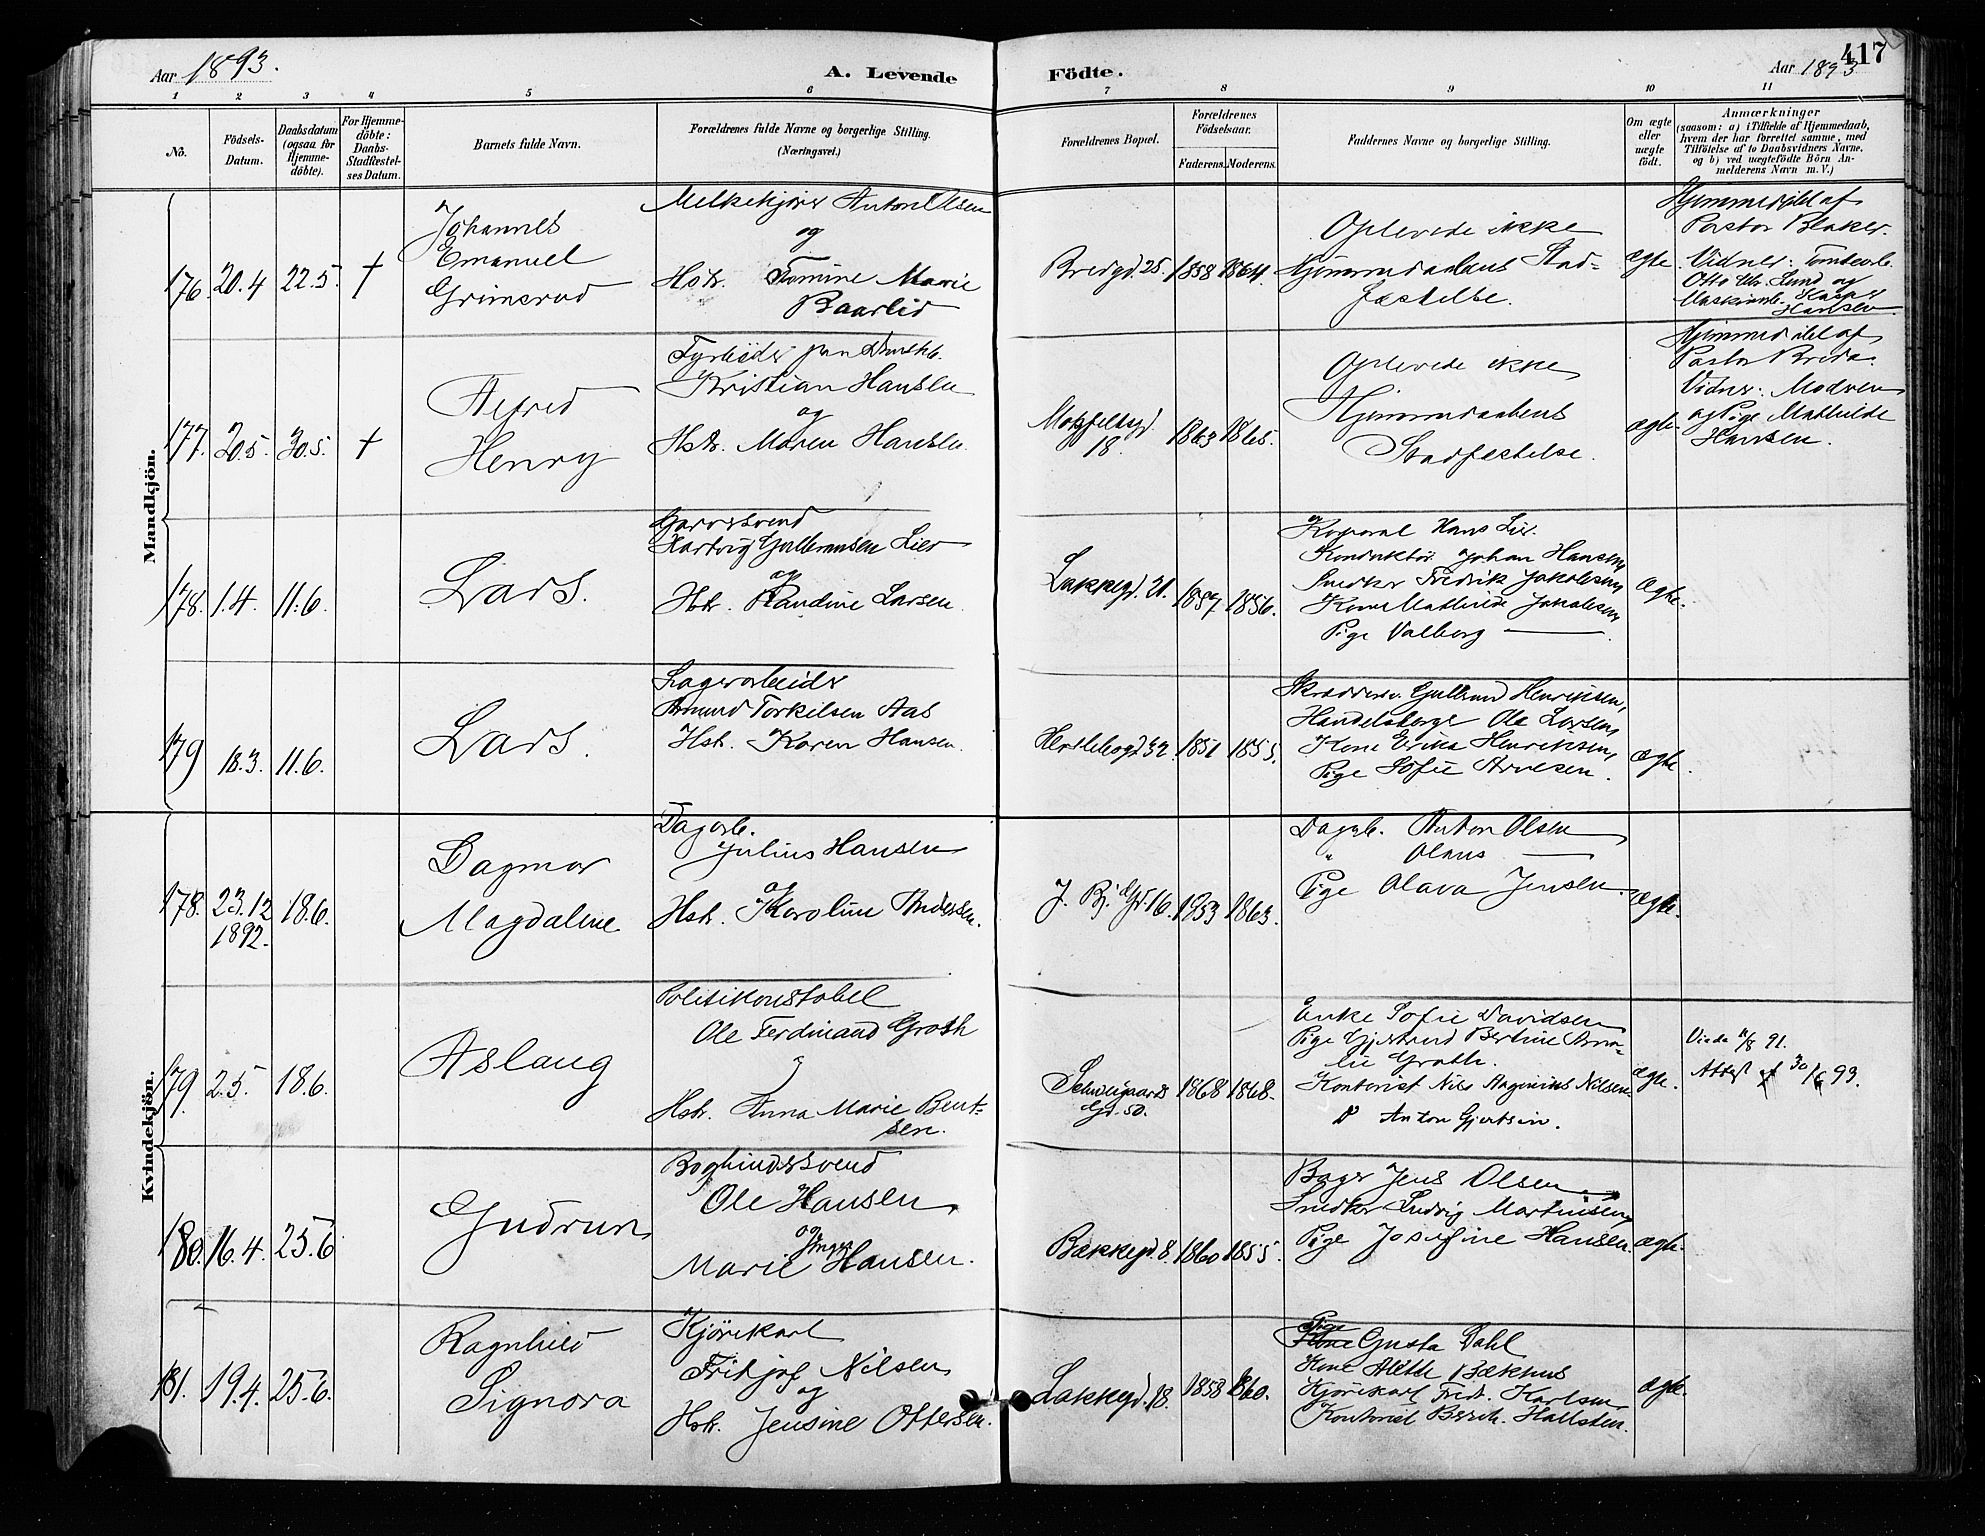 417
Aar 1893.
A. Levende
Födte.
Aar 1893
1 2 3 4 5 6 7 8 9 10 11
No.
Födsels-Datum.
Daabsdatum (ogsaa for Hjemme-döbte).
For Hjemme-döbte: Daabs-Stadfæstel-ses Datum.
Barnets fulde Navn.
Forældrenes fulde Navne og borgerlige Stilling.
(Næringsvei.)
Forældrenes Bopæl.
Forældrenes Födselsaar.
Faderens. Moderens.
Faddernes Navne og borgerlige Stilling.
Om ægte eller uægte födt.
Anmærkninger
(saasom: a) i Tilfælde af Hjemmedaab, hvem der har forrettet samme, med Tilföielse af to Daabsvidners Navne, og b) ved uægtefödte Börn Anmelderens Navn m. V.)
Mandkjön.
176. 20.4 22.5. †
Johannes
Emanuel
Grimsrud
Melkekjører Anton Olsen
og
Hstr. Tomine Marie
Baarlid
Bredgd. 25. 1858 1864.
Oplevede ikke
Hjemmedaabens Stad-
fæstelse.
ægte.
Hjemmedöbt af
Pastor Blaker.
Vidner: Tomtearb.
Otto Chr. Lund og
Maskinarb. Kasper
Hansen
177. 20.5. 30.5. †
Alfred
Henry
Fyrbøder paa Dmskb.
Kristian Hansen
og
Hstr. Maren Hansen.
18. 1863 1865.
Oplevede ikke
Hjemmedaabens
Stadfæstelse.
ægte.
Hjemmedöbt af
Pastor Breda.
Vidner: Modren
og Pige Mathilde
Hansen.
178. 1.4. 11.6.
Lars.
Garversvend
Hartvig Gulbransen Lier
og
Hstr. Randine Larsen.
Lakkegd. 21. 1857 1856.
Korporal Hans Lier.
Konduktør Johan Hansen,
Snedker Fredrik Jakobsen,
Kone Mathilde Jakobsen,
Pige Valborg ———.
ægte.
179 18.3. 11.6.
Lars.
Lagerarbeider
Amund Torkilsen Aas
Hstr. Karen Hansen.
Herslebsgd 32. 1851 1855.
Skræddersv. Gulbrand Henriksen,
Handelsborger Ole Larsen,
Kone Erika Henriksen,
Pige Sofie Arnesen.
ægte.
Kvindekjön.
178. 23.12 18.6.
1892.
Dagmar
Magdaline
Dagarb.
Julius Hansen
og
Hstr. Karoline Andersen.
J. Bj. Gd. 16. 1953 1863.
Dagarb. Anton Olsen
" Olaus ———
Pige Olava Jensen.
ægte.
179. 2.5. 18.6.
Aslaug
Politikonstabel
Ole Ferdinand Groth
og
Hstr. Anna Marie Bent-
sen.
Schweigaards
Gd. 50. 1868 1868.
Enke Sofie Davidsen
Pige Gjertrud Bertine Ama-
lie Groth.
Kontorist Nils Nilsen
D Anton Gjertsen.
ægte.
Viede 11/8 91.
Attest 30/6 93.
180. 16.4. 25.6
Gudrun
Bogbindersvend
Ole Hansen
og
Inger
Marie Hansen.
Bakkegd. 8. 1860 1855.
Bager Jens Olsen
Snedker Ludvig Martinsen,
Pige Josefine Hansen.
ægte.
181. 19.4. 25.6.
Ragnhild
Signora
Kjørekarl
Fritjof Nilsen
og
Hstr. Jensine Ottersen.
Lakkegd. 18. 1858 1860.
Pige
Kone Gusta Dahl
Kone Alette Bækhus
Kjørekarl Fredr. Karlsen
Kontorist Bernh. Hallsten.
ægte.